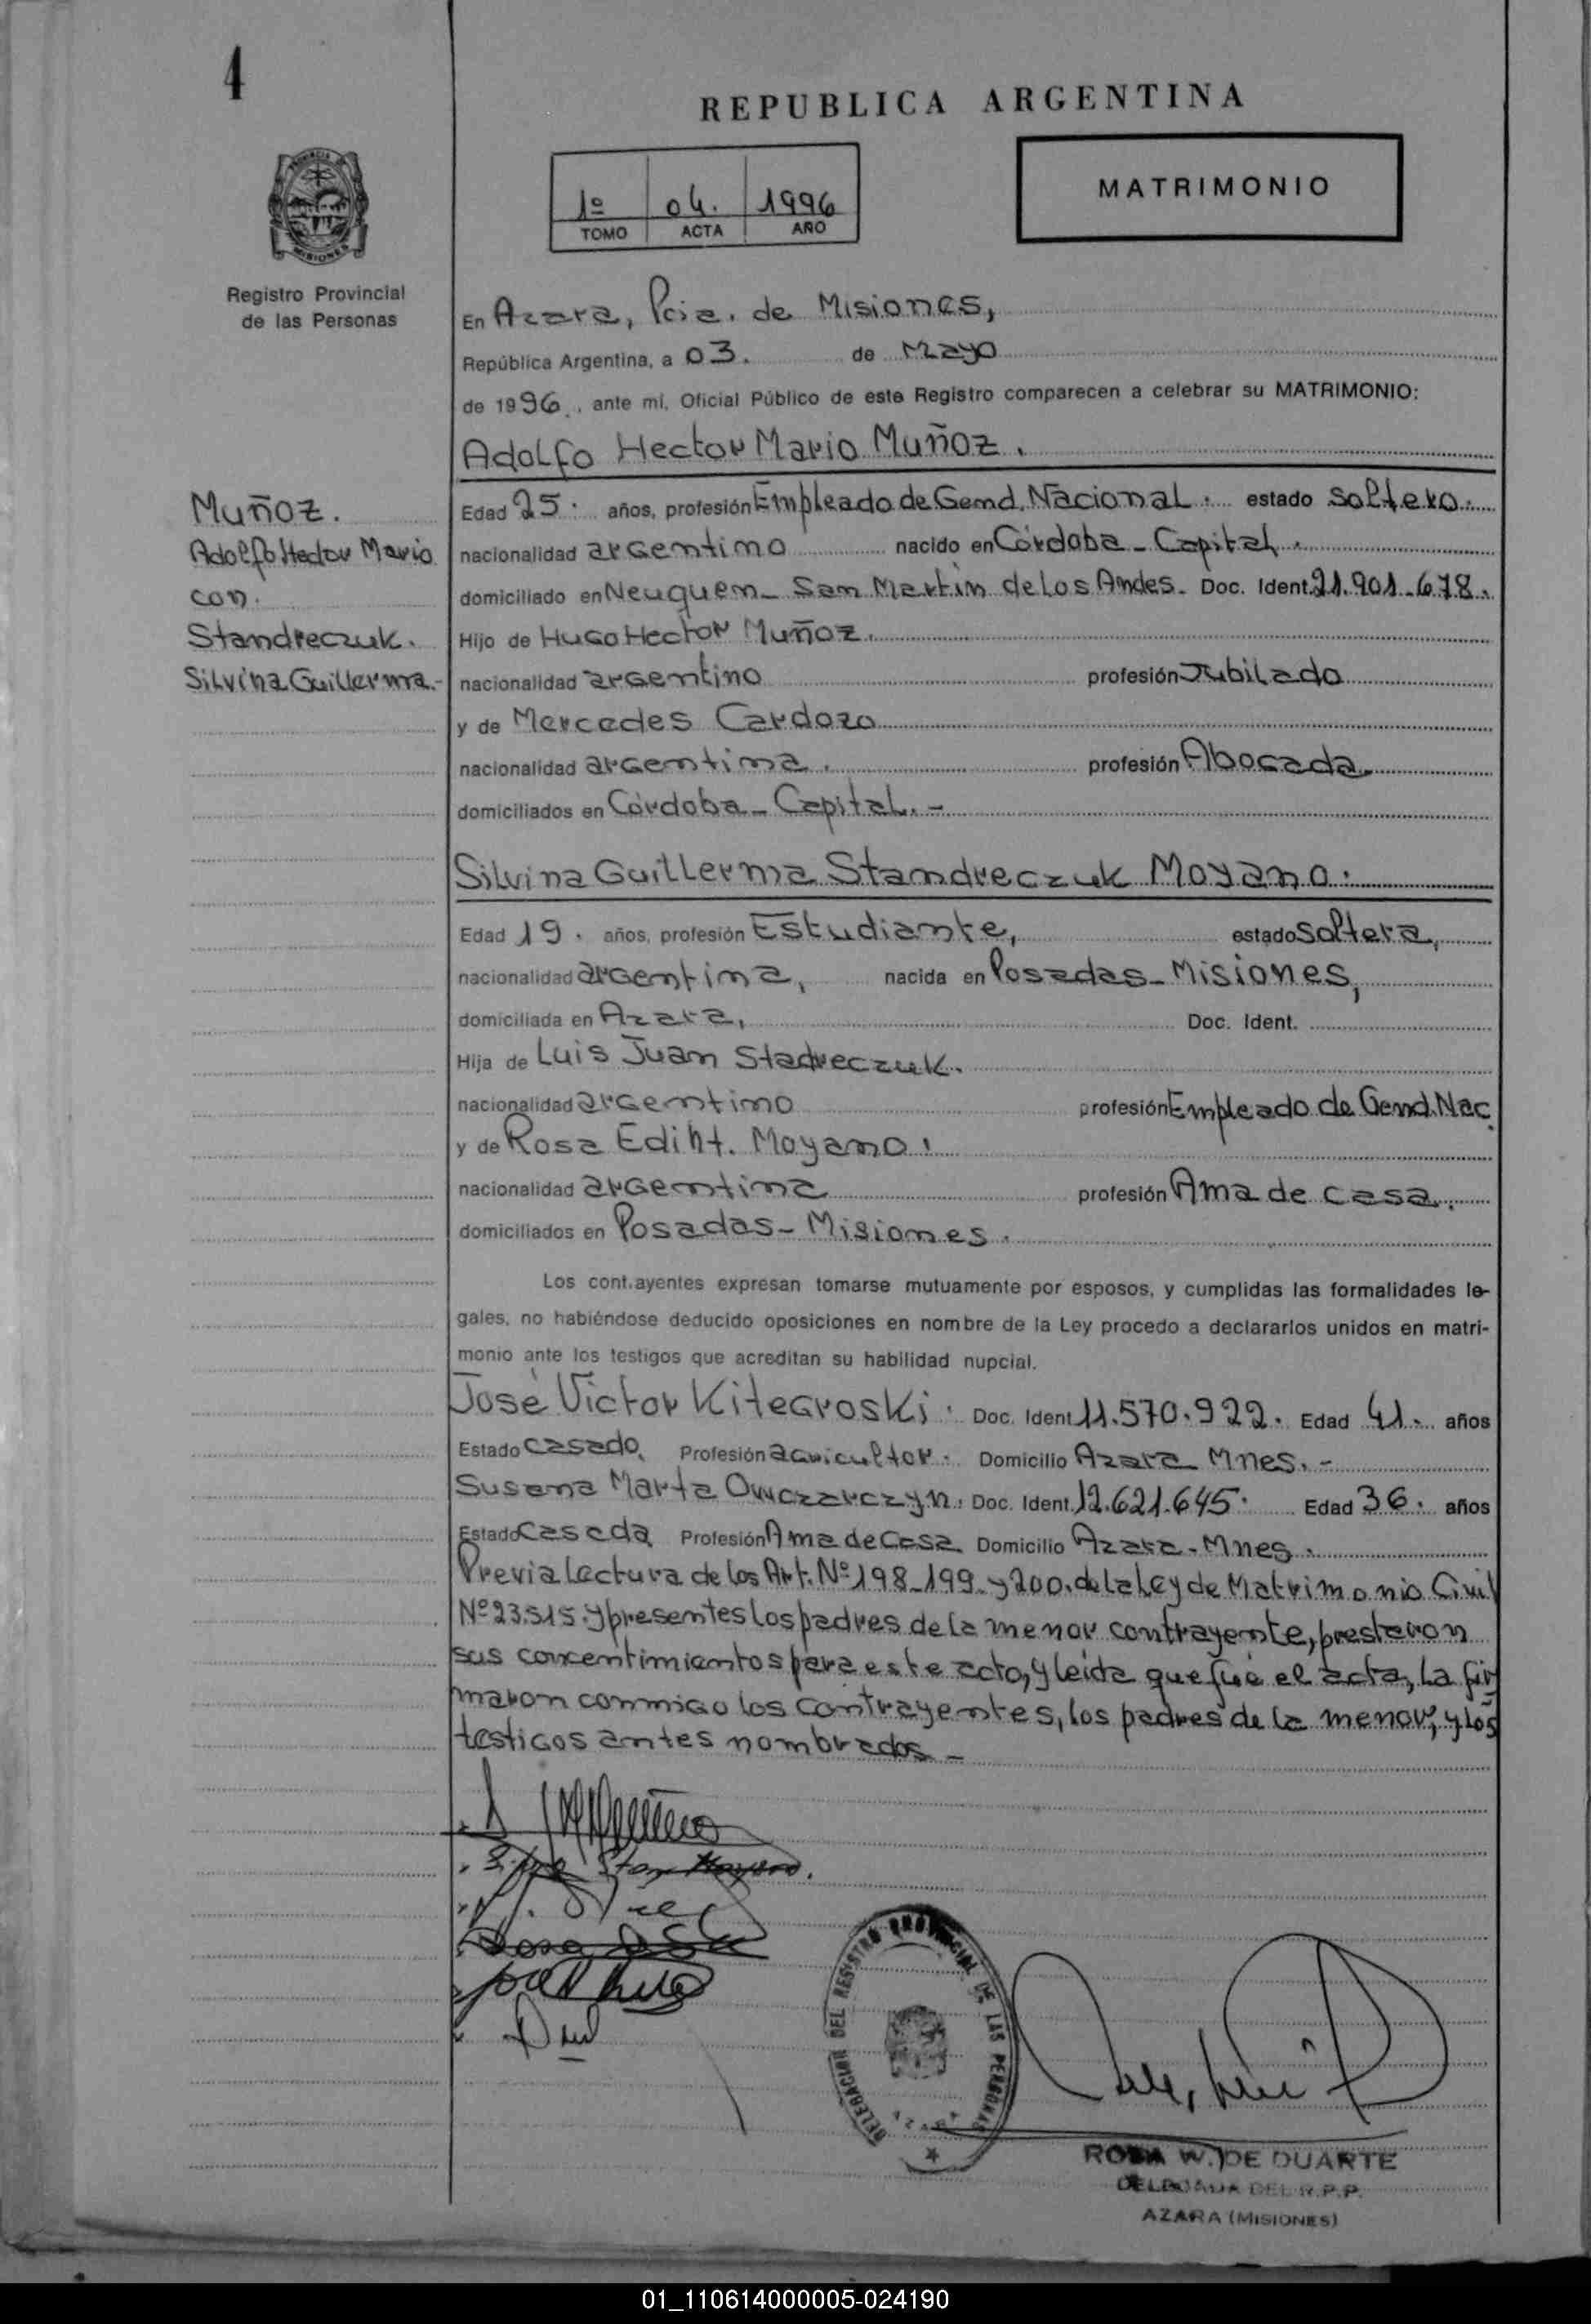 4
REPUBLICA ARGENTINA
1º 04. 1996
TOMO ACTA AÑO
MATRIMONIO
PROVINCIA DE
MISIONES
Registro Provincial
de las Personas
En Azara, Pcia. de Misiones,
República Argentina, a 03. de Mayo
de 1996., ante mí, Oficial Público de este Registro comparecen a celebrar su MATRIMONIO:
Adolfo Hector Mario Muñoz.
Muñoz.
Adolfo Hector Mario
con.
Standreczuk.
Silvina Guillerma.-
Edad 25. años, profesión Empleado de Gend. Nacional. estado soltero.
nacionalidad argentino nacido en Córdoba - Capital.
domiciliado en Neuquen - San Martín de Los Andes. Doc. Ident. 21.901.678.
Hijo de Hugo Hector Muñoz.
nacionalidad argentino profesión Jubilado
y de Mercedes Cardozo
nacionalidad argentina. profesión Abogada.
domiciliados en Córdoba - Capital. -
Silvina Guillerma Standreczuk Moyano.
Edad 19. años, profesión Estudiante, estado soltera,
nacionalidad argentina, nacida en Posadas - Misiones,
domiciliada en Azara, Doc. Ident.
Hija de Luis Juan Stadreczuk.
nacionalidad argentino profesión Empleado de Gend. Nac.
y de Rosa Ediht. Moyano.
nacionalidad argentina profesión Ama de casa.
domiciliados en Posadas - Misiones.
Los cont.ayentes expresan tomarse mutuamente por esposos, y cumplidas las formalidades le-
gales, no habiéndose deducido oposiciones en nombre de la Ley procedo a declararlos unidos en matri-
monio ante los testigos que acreditan su habilidad nupcial.
José Victor Kitegroski. Doc. Ident. 11.570.922. Edad 41. años
Estado casado, Profesión agricultor. Domicilio Azara Mnes. -
Susana Marta Owczarczyn. Doc. Ident. 12.621.645. Edad 36. años
Estado Casada Profesión Ama de Casa. Domicilio Azara - Mnes.
Previa Lectura de los Art. Nº 198-199 y 200. de la Ley de Matrimonio Civil
Nº 23.515. y presentes los padres de la menor contrayente, prestaron
sus concentimientos para este acto, y leída que fué el acta, la fir
maron conmigo los contrayentes, los padres de la menor, y los
testigos antes nombrados -
DELEGACION DEL REGISTRO PROVINCIAL DE LAS PERSONAS
ROSA W. DE DUARTE
DELEGADA DEL R.P.P.
AZARA (MISIONES)
01_110614000005-024190